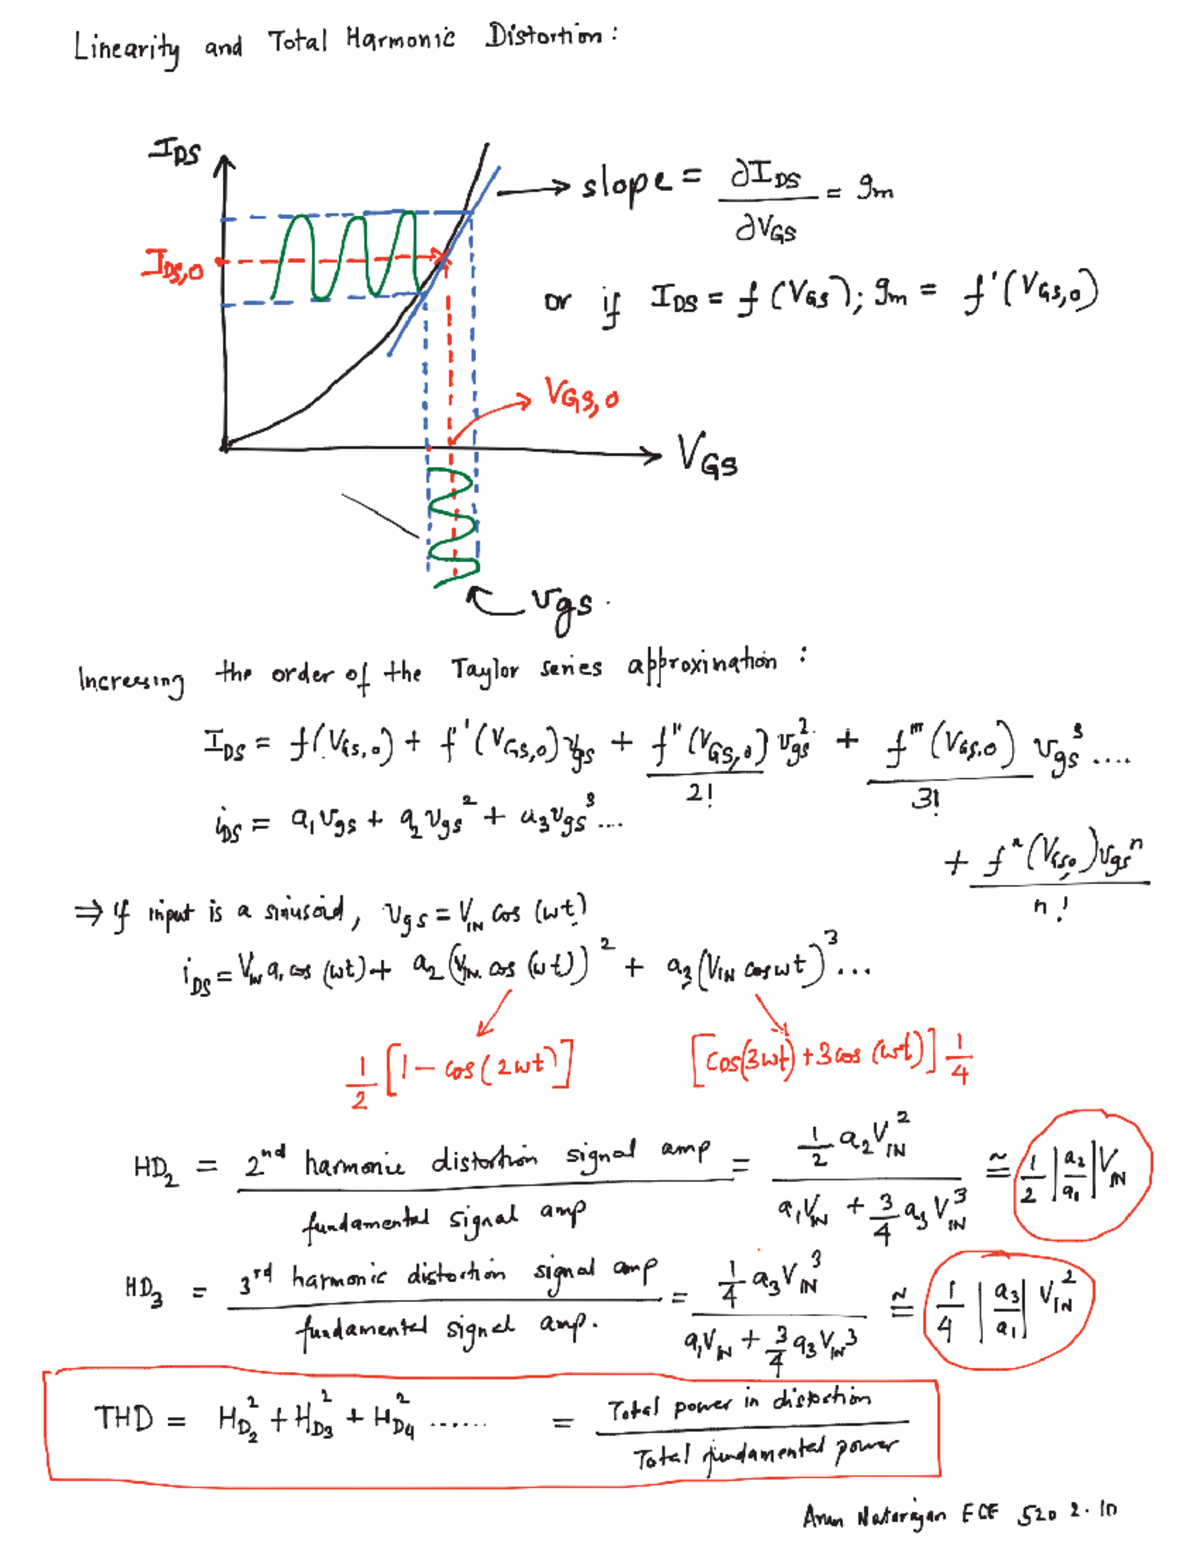 Linearity and Total Harmonic Distortion:
I_DS
slope = ∂I_DS / ∂V_GS = g_m
I_DS,0
or if I_DS = f(V_GS); g_m = f'(V_GS,0)
V_GS,0
V_GS
v_gs.
Increasing the order of the Taylor series approximation:
I_DS = f(V_GS,0) + f'(V_GS,0) v_gs + f''(V_GS,0)/2! v_gs^2 + f'''(V_GS,0)/3! v_gs^3 ....
i_DS = a_1 v_gs + a_2 v_gs^2 + a_3 v_gs^3 ...
+ f^n(V_GS,0) v_gs^n / n!
⇒ If input is a sinusoid, v_gs = V_IN cos (wt)
i_DS = V_IN a_1 cos (wt) + a_2 (V_IN cos (wt))^2 + a_3 (V_IN cos wt)^3 ...
1/2 [1 - cos(2wt)]
[cos(3wt) + 3cos (wt)] 1/4
HD_2 = 2nd harmonic distortion signal amp / fundamental signal amp = 1/2 a_2 V_IN^2 / a_1 V_IN + 3/4 a_3 V_IN^3 ≅ 1/2 |a_2/a_1| V_IN
HD_3 = 3rd harmonic distortion signal amp / fundamental signal amp. = 1/4 a_3 V_IN^3 / a_1 V_IN + 3/4 a_3 V_IN^3 ≅ 1/4 |a_3/a_1| V_IN^2
THD = HD_2^2 + HD_3^2 + HD_4^2 ...... = Total power in distortion / Total fundamental power
Arun Natarajan ECE 520 2.10